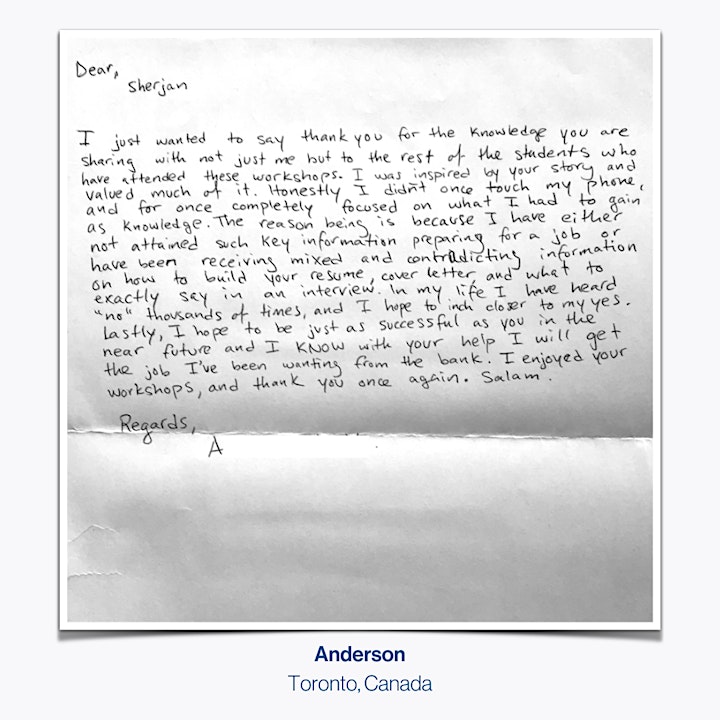 Dear,
Sherjan
I just wanted to say thank you for the knowledge you are
sharing with not just me but to the rest of the students who
have attended these workshops. I was inspired by your story and
valued much of it. Honestly I didn't once touch my phone,
and for once completely focused on what I had to gain
as knowledge. The reason being is because I have either
not attained such key information preparing for a job or
have been receiving mixed and contradicting information
on how to build your resume, cover letter, and what to
exactly say in an interview. In my life I have heard
"no" thousands of times, and I hope to inch closer to my yes.
Lastly, I hope to be just as successful as you in the
near future and I KNOW with your help I will get
the job I've been wanting from the bank. I enjoyed your
workshops, and thank you once again. Salam.
Regards,
A
Anderson
Toronto, Canada